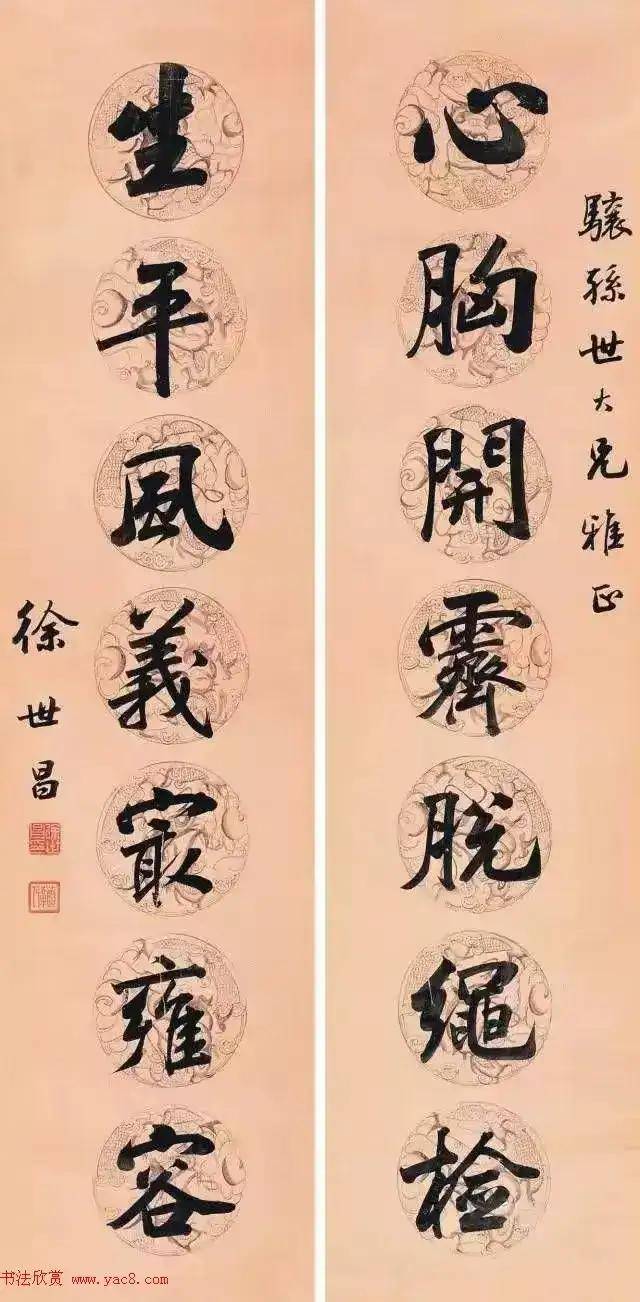 驤孫世大兄雅正
心胸開霽脫繩檢
生平風義寂雍容
徐世昌
书法欣赏 www.yac8.com